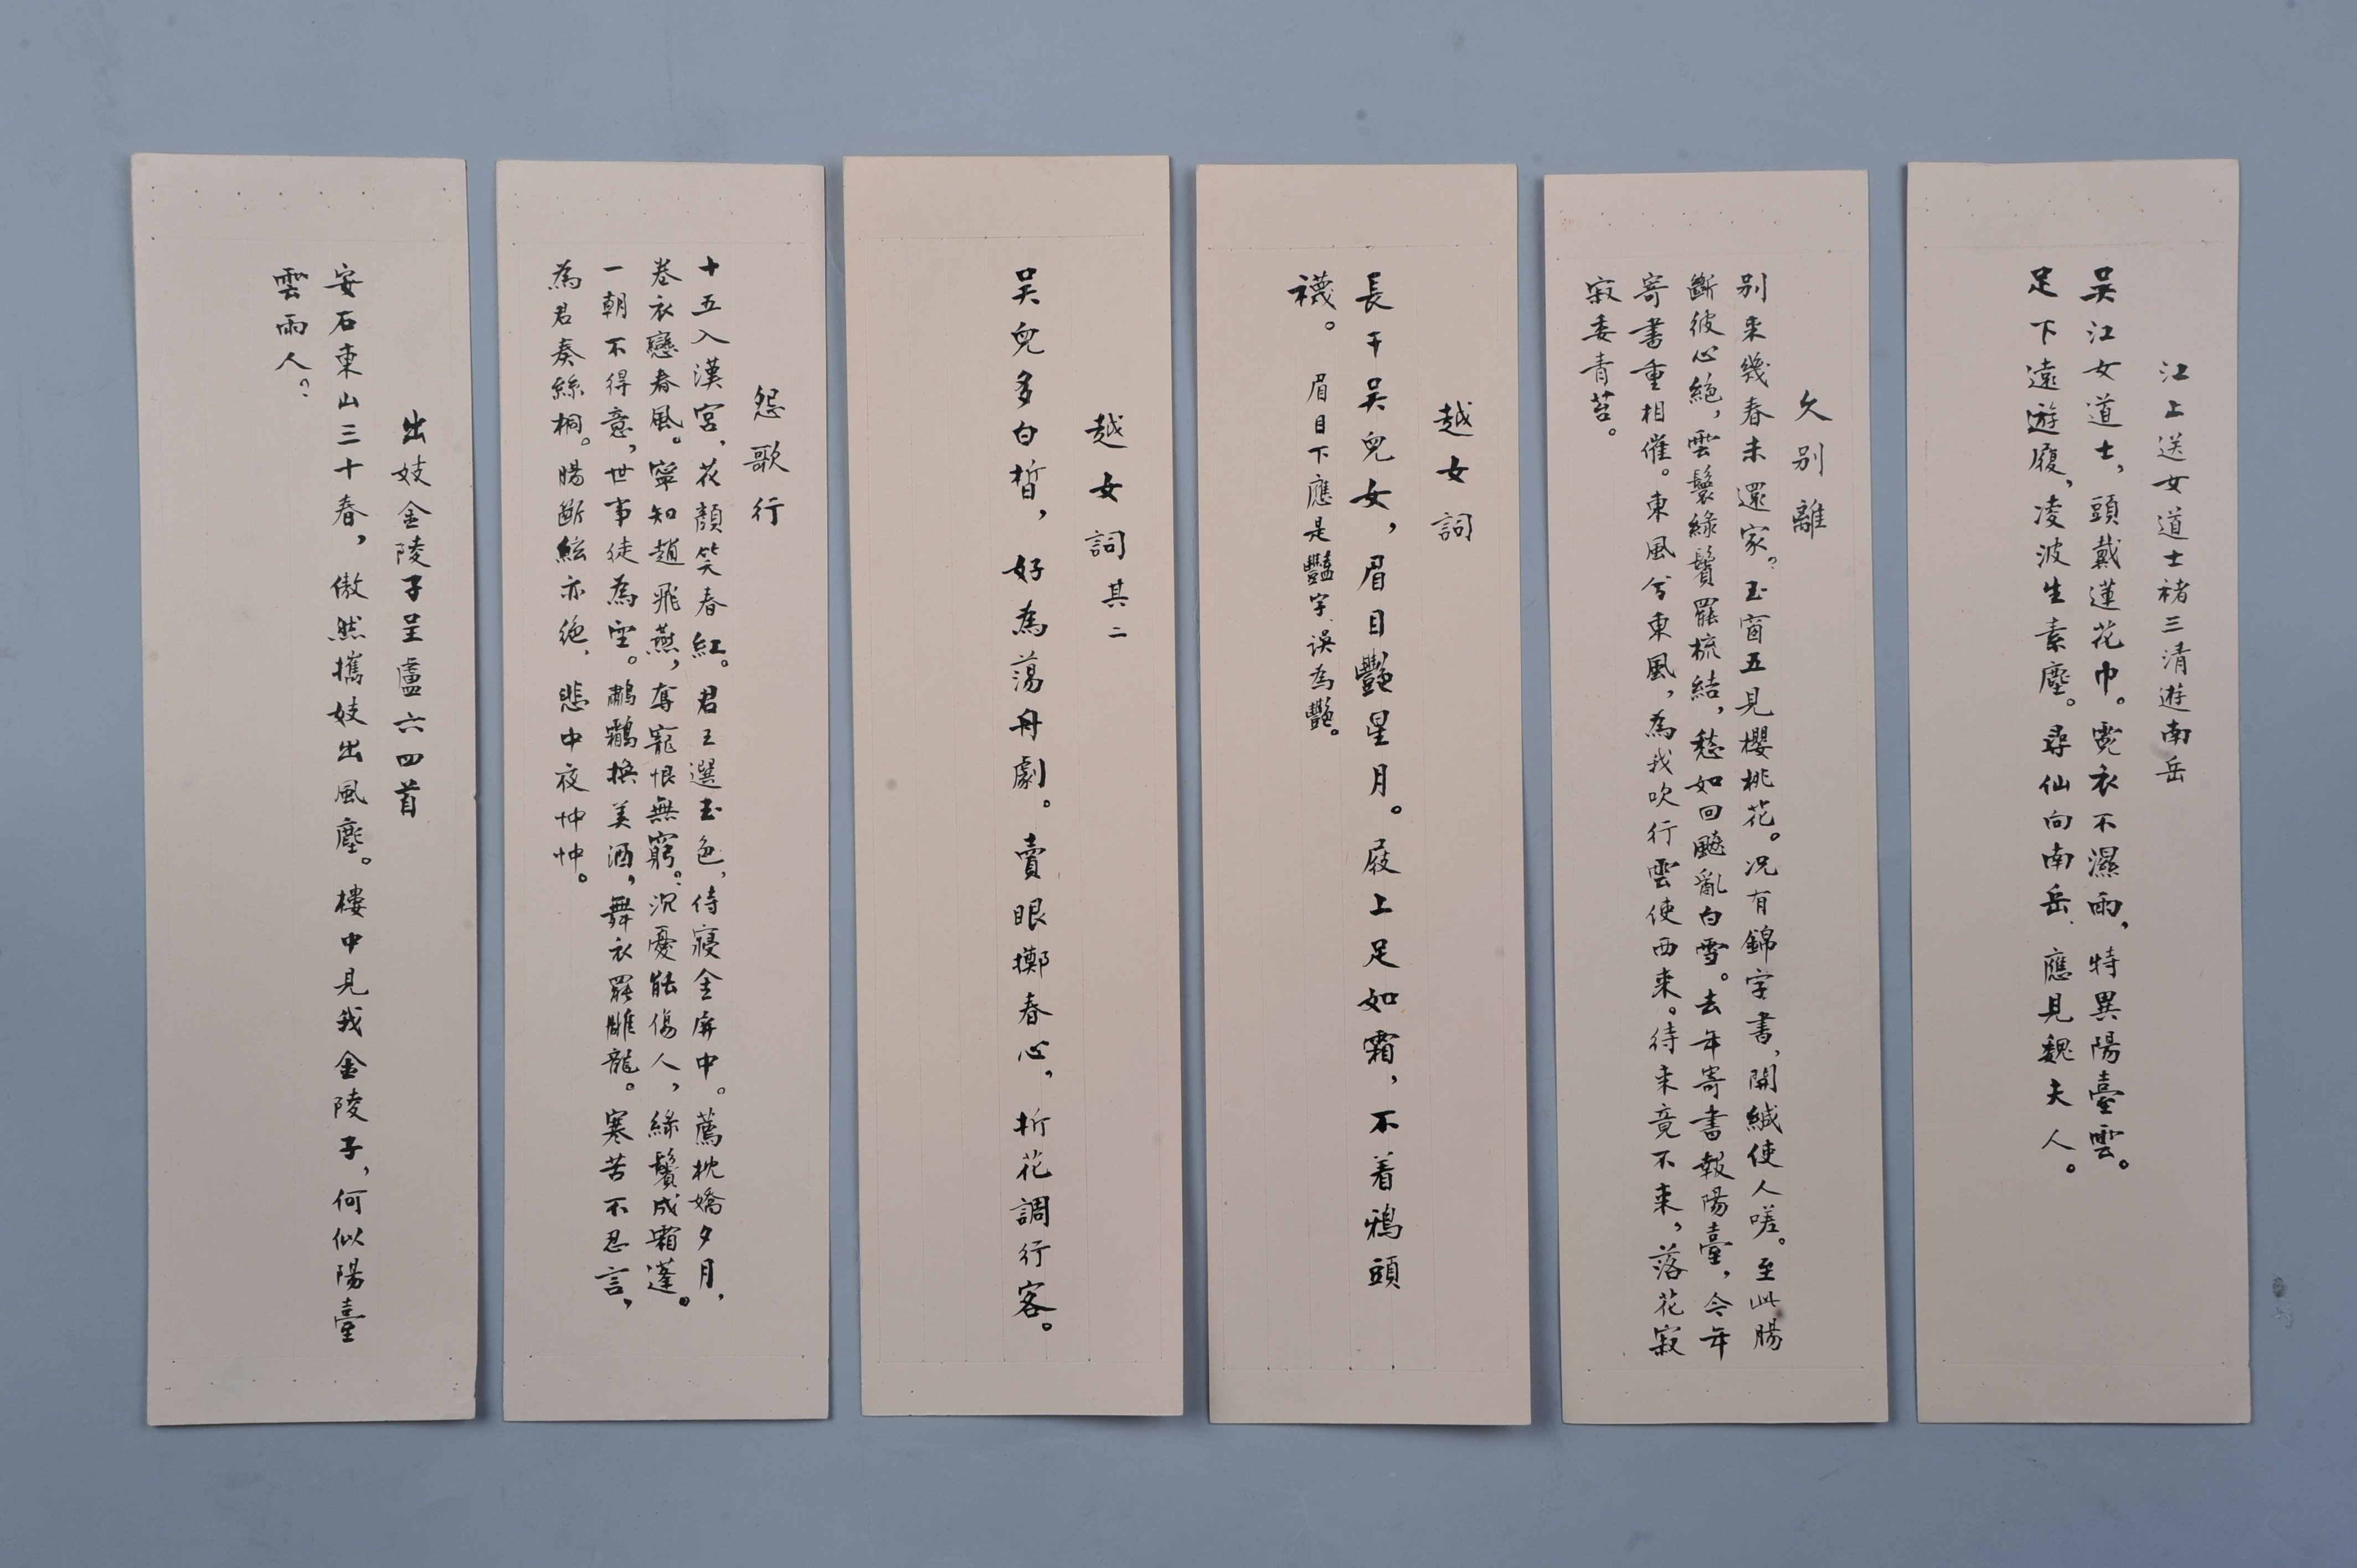 江上送女道士褚三清遊南岳
吳江女道士，頭戴蓮花巾。霓衣不濕雨，特異陽臺雲。
足下遠遊履，凌波生素塵。尋仙向南岳，應見魏夫人。
久別離
別來幾春未還家？玉窗五見櫻桃花。況有錦字書，開緘使人嗟。至此腸
斷彼心絕，雲鬟綠鬢罷梳結，愁如回飈亂白雪。去年寄書報陽臺，今年
寄書重相催。東風兮東風，為我吹行雲使西來。待來竟不來，落花寂
寂委青苔。
越女詞
長干吳兒女，眉目艷星月。屐上足如霜，不着鴉頭
襪。 眉目下應是豔字，誤為艷。
越女詞 其二
吳兒多白皙，好為蕩舟劇。賣眼擲春心，折花調行客。
怨歌行
十五入漢宮，花顏笑春紅。君王選玉色，侍寢金屏中。薦枕嬌夕月，
卷衣戀春風。寧知趙飛燕，奪寵恨無窮？沉憂能傷人，綠鬢成霜蓬。
一朝不得意，世事徒為空。鷫鸘換美酒，舞衣罷雕龍。寒苦不忍言，
為君奏絲桐。腸斷絃亦絕，悲中夜忡忡。
出妓金陵子呈盧六四首
安石東山三十春，傲然攜妓出風塵。樓中見我金陵子，何似陽臺
雲雨人？